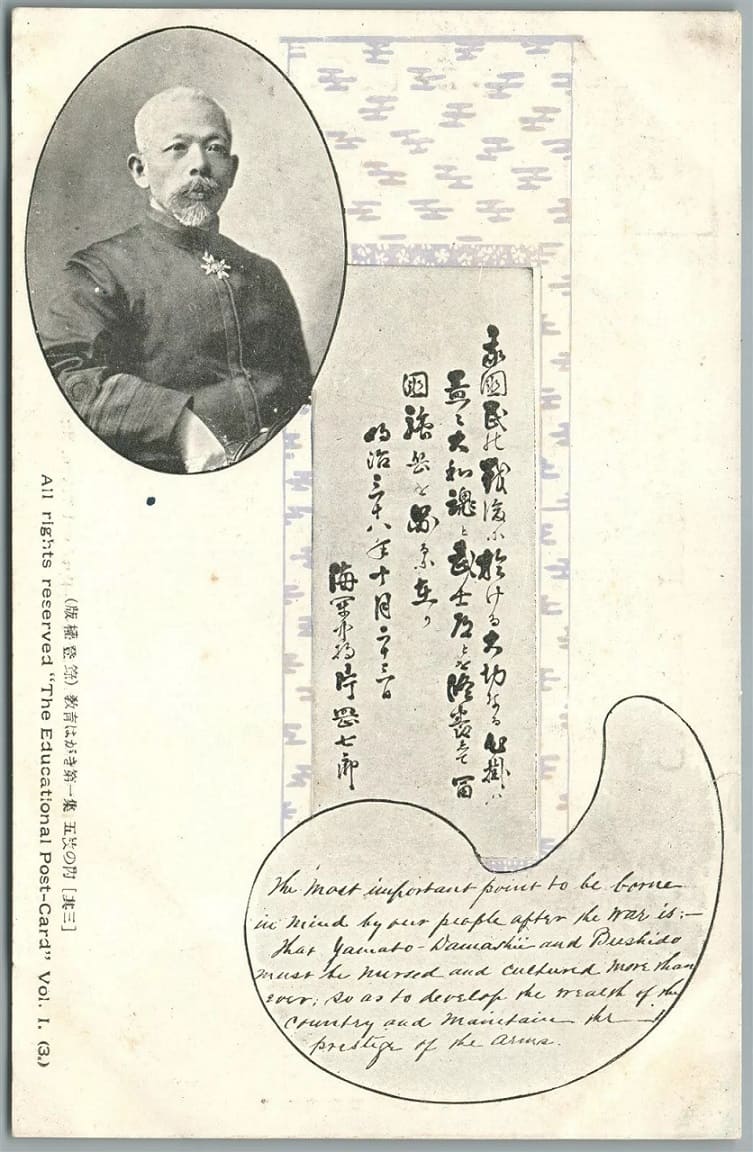 我國民の戦後に於ける大切なる心掛ハ
益々大和魂と武士道とを修養して富
國強兵を圖るに在り
明治三十八年十月二十三日
海軍中将片岡七郎
(版權登錄) 教育はがき第一集 五枚の内 [其三]
All rights reserved "The Educational Post-Card" Vol. I. (3.)
The most important point to be borne
in mind by our people after the war is:—
that Yamato-Damashii and Bushido
must be nursed and cultured more than
ever; so as to develop the wealth of the
country and maintain the
prestige of the arms.